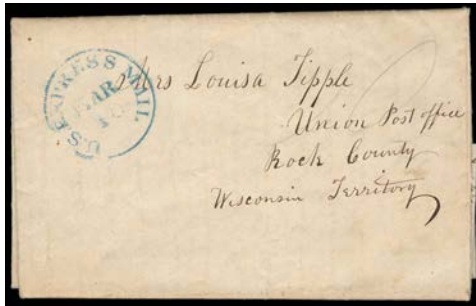 U.S. EXPRESS MAIL
MAR
10
Mrs Louisa Tipple
Union Post office
Rock County
Wisconsin Territory